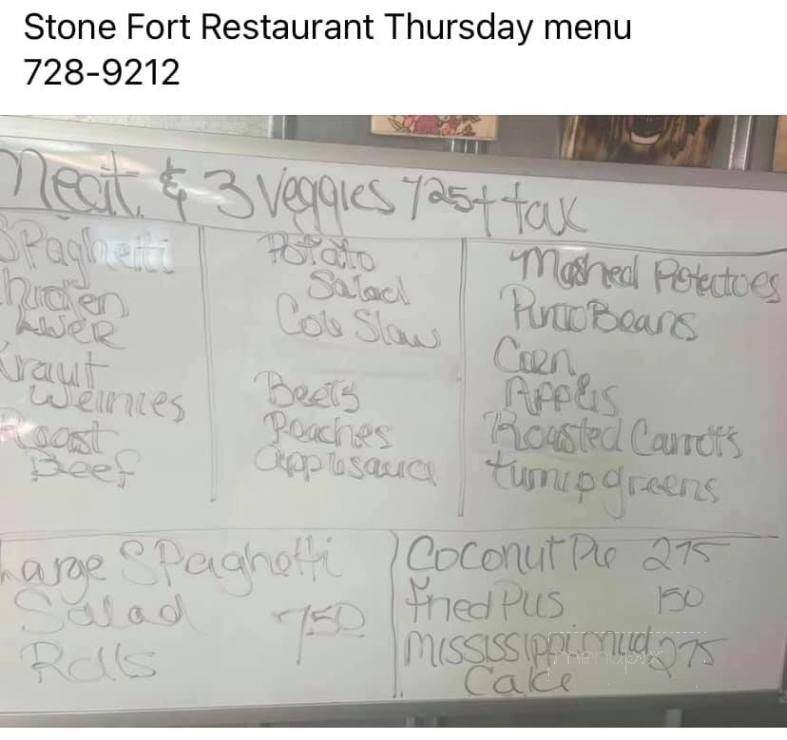 Stone Fort Restaurant Thursday menu
728-9212
Meat & 3 Veggies 725+ tax
Spaghetti
Chicken
Liver
Kraut
Weinies
Roast
Beef
Potato
Salad
Cole Slaw
Beets
Peaches
applesauce
Mashed Potatoes
Pinto Beans
Corn
Apples
Roasted Carrots
turnip greens
Large Spaghetti
Salad 750
Rolls
Coconut Pie 275
Fried Pies 150
Mississippi mud 275
Cake
menupix